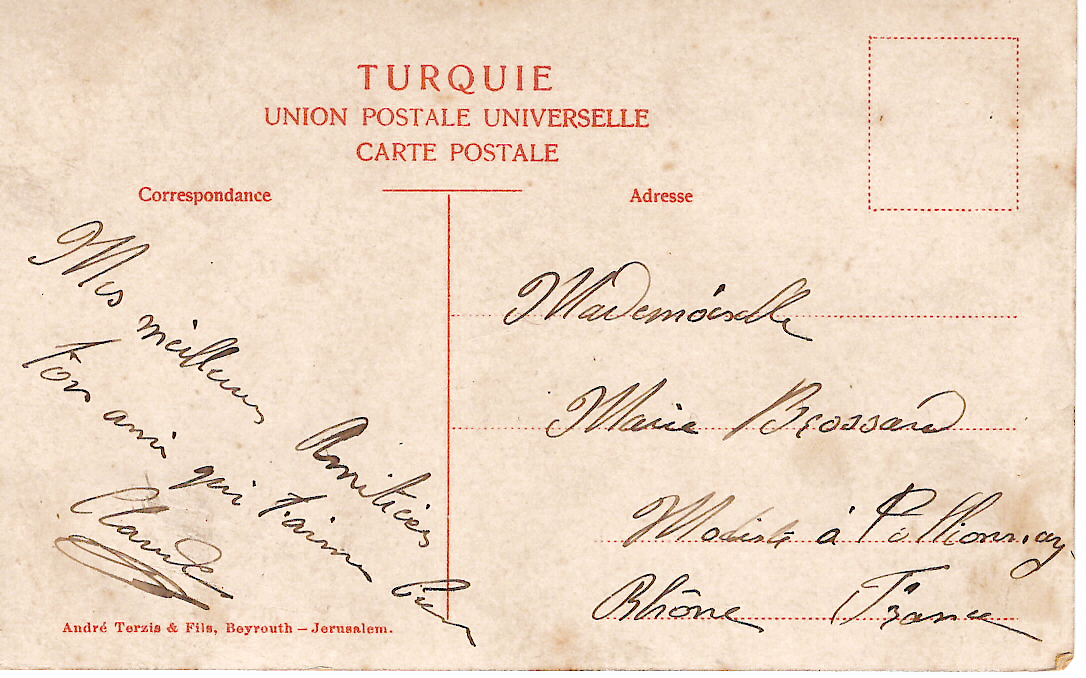 TURQUIE
UNION POSTALE UNIVERSELLE
CARTE POSTALE
Correspondance
Adresse
Mes meilleures Amitiées
Ton ami qui t'aime
Claude
Mademoiselle
Marie Brossard
Modiste à
Rhône France
André Terzis & Fils, Beyrouth – Jerusalem.